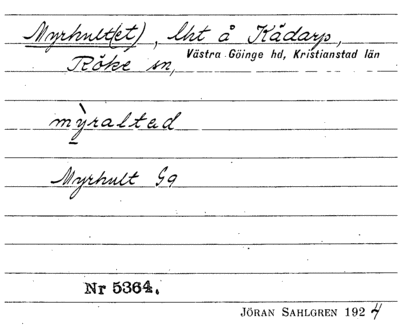 Myrhult(et), lht å Kådarp,
Västra Göinge hd, Kristianstad län
Röke sn,
mỳralted
Myrhult Gg
Nr 5364.
JÖRAN SAHLGREN 1924